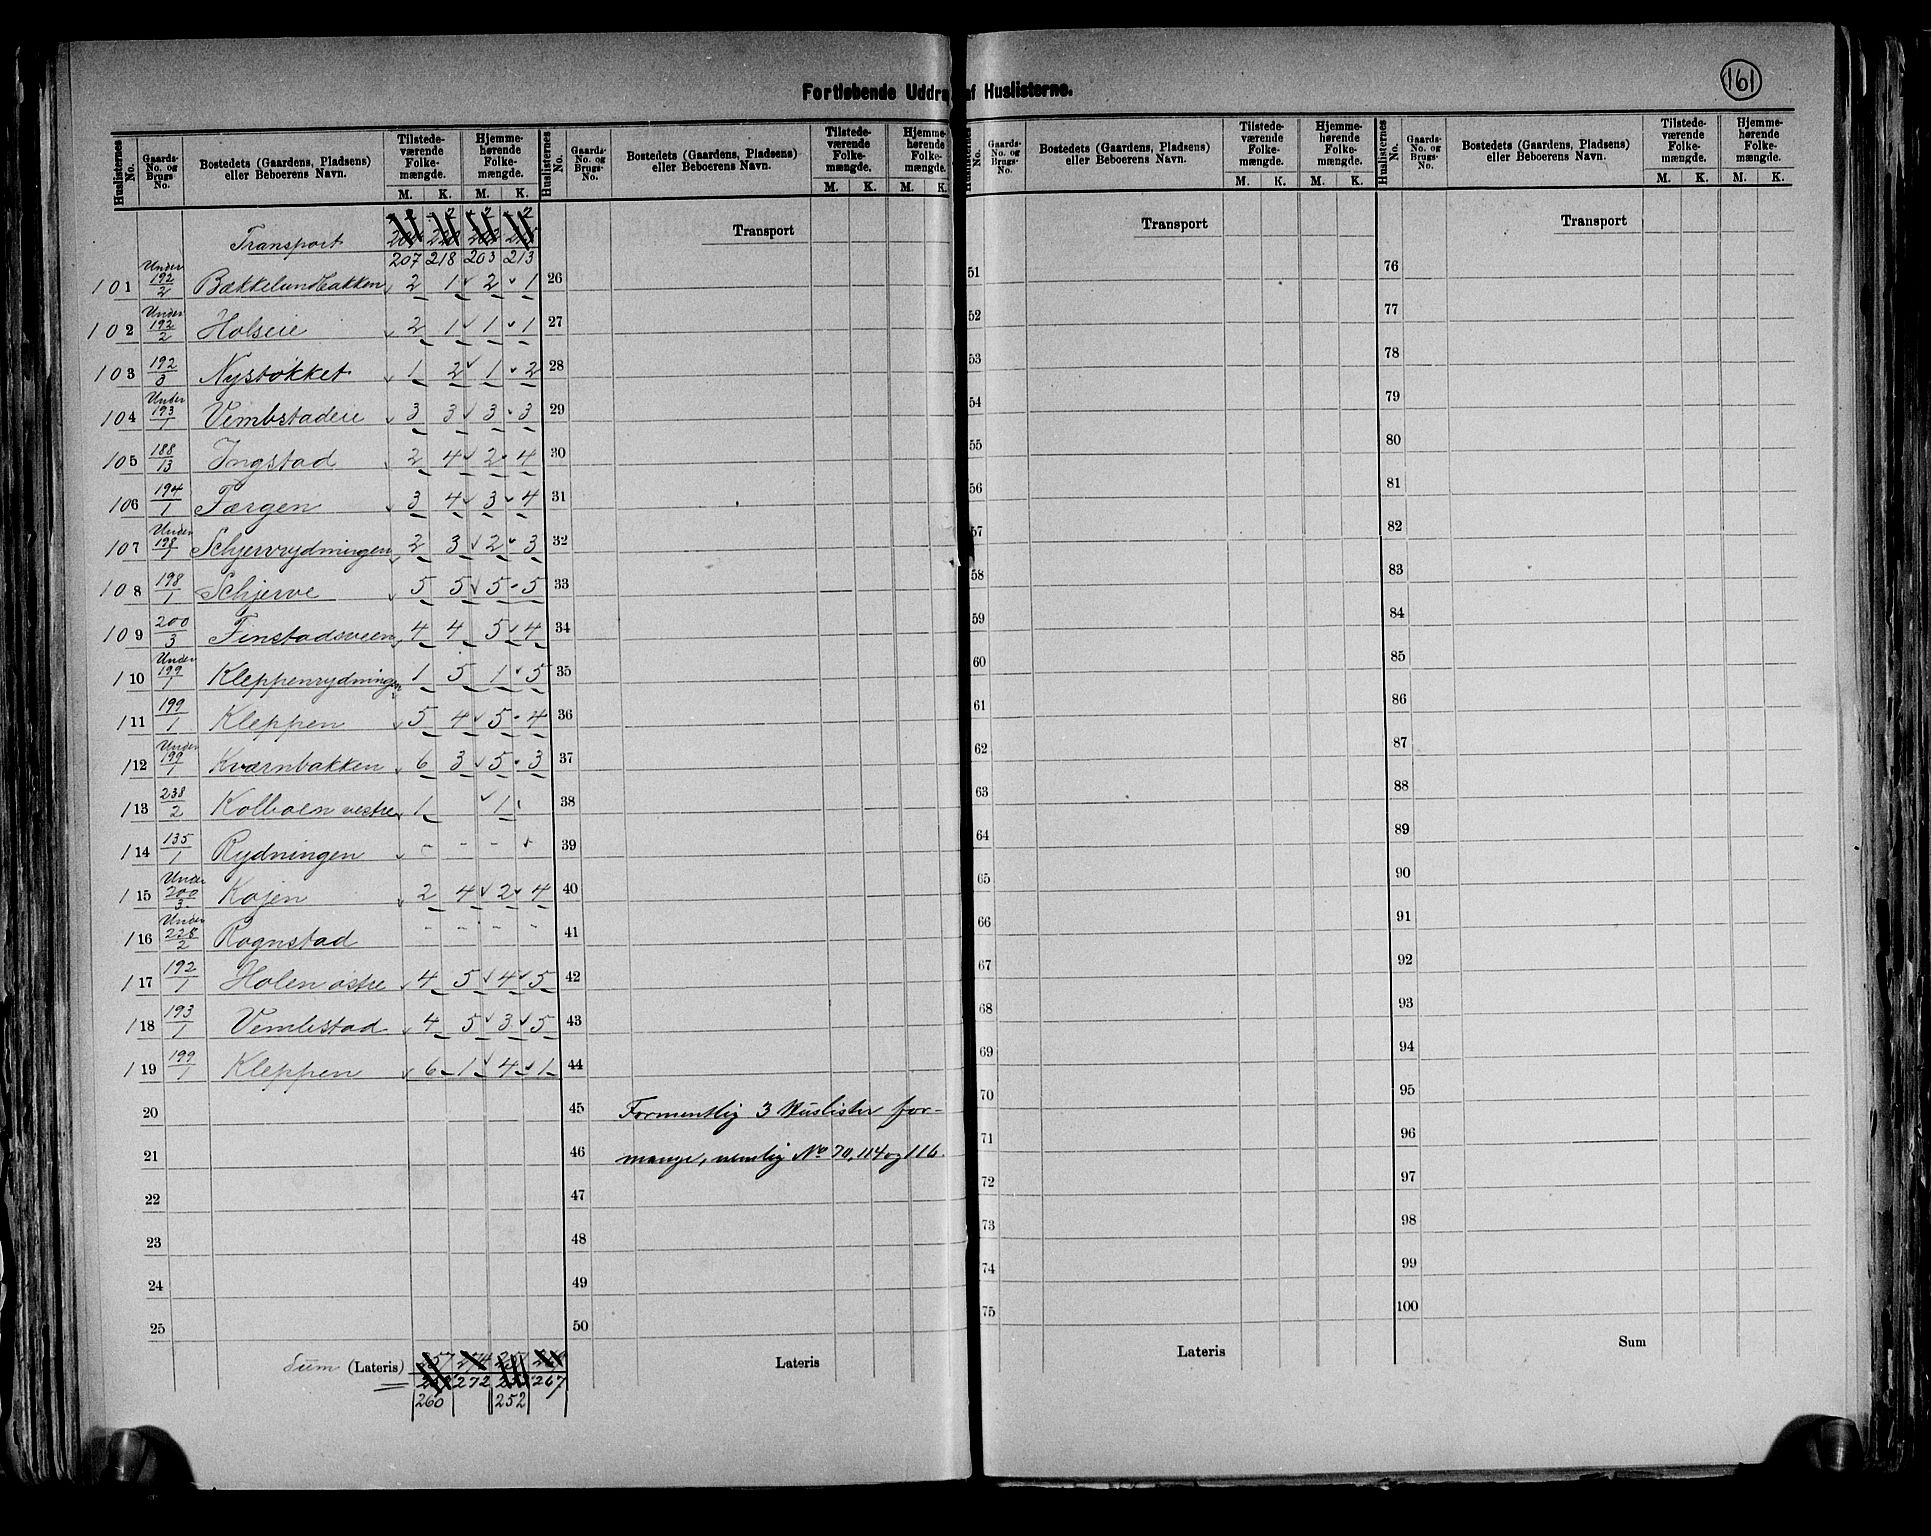 Fortløbende Uddra af Huslisterne.
161
Huslisternes No. Gaards-No. og Brugs-No. Bostedets (Gaardens, Pladsens) eller Beboerens Navn. Tilstedeværende Folkemængde. M. K. Hjemmehørende Folkemængde. M. K.
Huslisternes No. Gaards-No. og Brugs-No. Bostedets (Gaardens, Pladsens) eller Beboerens Navn. Tilstedeværende Folkemængde. M. K. Hjemmehørende Folkemængde. M. K.
Huslisternes No. Gaards-No. og Brugs-No. Bostedets (Gaardens, Pladsens) eller Beboerens Navn. Tilstedeværende Folkemængde. M. K. Hjemmehørende Folkemængde. M. K.
Huslisternes No. Gaards-No. og Brugs-No. Bostedets (Gaardens, Pladsens) eller Beboerens Navn. Tilstedeværende Folkemængde. M. K. Hjemmehørende Folkemængde. M. K.
Transport
207 218 203 213
101 Under 192/2 Bækkelundbakken 2 1 2 1
102 Under 192/2 Holseie 2 1 1 1
103 192/3 Nystøkket 1 2 1 2
104 Under 193/1 Vembstadeie 3 3 3 3
105 188/13 Ingstad 2 4 2 4
106 194/1 Færgen 3 4 3 4
107 Under 198/1 Schjervrydningen 2 3 2 3
108 198/1 Schjerve 5 5 5 5
109 200/3 Finstadsveen 4 4 5 4
110 Under 199/1 Kleppenrydningen 1 5 1 5
111 199/1 Kleppen 5 4 5 4
112 Under 199/1 Kværnbakken 6 3 5 3
113 238/2 Kolboen vestre 1 1
114 135/1 Rydningen - - - -
115 Under 200/3 Kojen 2 4 2 4
116 Under 228/2 Rognstad - - - -
117 192/1 Holen østre 4 5 4 5
118 193/1 Vembstad 4 5 3 5
119 199/1 Kleppen 6 1 4 1
20
21
22
23
24
25
Sum (Lateris) 257 274 251
272 267
260 252
Transport
26
27
28
29
30
31
32
33
34
35
36
37
38
39
40
41
42
43
44
45 Formentlig 3 Huslister for-
46 mange, nemlig No 70, 114 og 116.
47
48
49
50
Lateris
Transport
51
52
53
54
55
56
57
58
59
60
61
62
63
64
65
66
67
68
69
70
71
72
73
74
75
Lateris
Transport
76
77
78
79
80
81
82
83
84
85
86
87
88
89
90
91
92
93
94
95
96
97
98
99
100
Sum